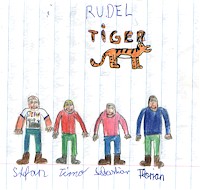 RUDEL
TIGER
Stefan Timo Sebastian Florian